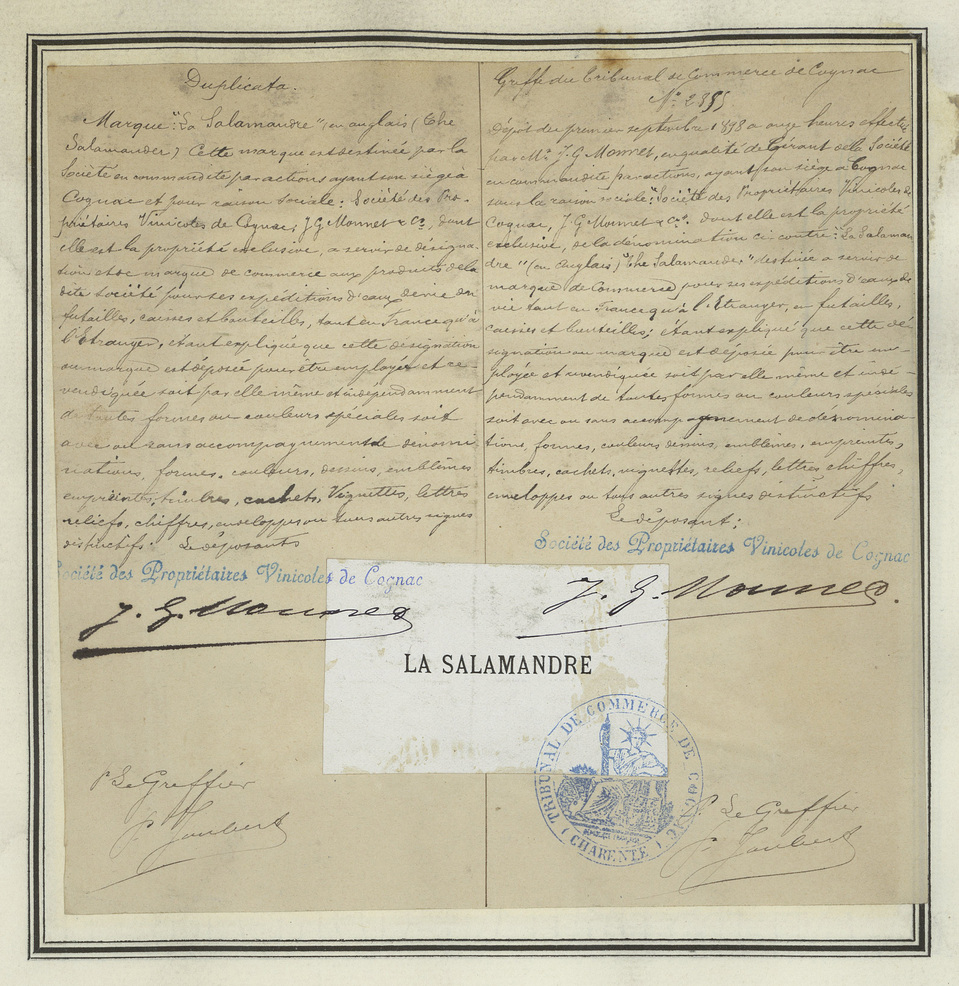 Duplicata.
Marque "La Salamandre" (en anglais (The
Salamander) Cette marque est destinée par la
Société en commandite par actions ayant son siège à
Cognac et pour raison sociale: Société des Pro-
priétaires Vinicoles de Cognac, J. G. Monnet & Co, dont
elle est la propriété exclusive, a servir de désigna-
tion et de marque de commerce aux produits de la
dite société pour ses expéditions d'eaux de vie en
futailles, caisses et bouteilles, tant en France qu'à
l'Etranger, étant expliqué que cette désignation
ou marque est déposée pour être employée et re-
vendiquée soit par elle même et indépendamment
de toutes formes ou couleurs spéciales soit
avec ou sans accompagnement de dénomi-
nations, formes, couleurs, dessins, emblèmes
empreintes, timbres, cachets, Vignettes, lettres
reliefs, chiffres, enveloppes ou tous autres signes
distinctifs. Le déposants
Société des Propriétaires Vinicoles de Cognac
J. G. Monnet
P Le Greffier
P. Joubert
Greffe du Tribunal de Commerce de Cognac
No 2855
Dépôt du premier septembre 1898 a onze heures effectué
par Mr J. G. Monnet, en qualité de Gérant de la Société
en commandite par actions, ayant son siège à Cognac
sous la raison sociale: "Société des Propriétaires Vinicoles de
Cognac, J. G. Monnet & Co. dont elle est la propriété
exclusive, de la dénomination ci contre: "La Salaman-
dre" (en Anglais) "The Salamander" destinée a servir de
marque de Commerce pour ses expéditions d'eaux de
vie tant en France qu'à l'Etranger, en futailles,
caisses et bouteilles; étant expliqué que cette dé-
signation ou marque est déposée pour être em-
ployée et revendiquée soit par elle même et indé-
pendamment de toutes formes ou couleurs spéciales
soit avec ou sans accompagnement de dénomina-
tions, formes, couleurs dessins, emblèmes, empreintes,
timbres, cachets, vignettes, reliefs, lettres chiffres,
enveloppes ou tous autres signes distinctifs
Le déposant;
Société des Propriétaires Vinicoles de Cognac
J. G. Monnet.
LA SALAMANDRE
TRIBUNAL DE COMMERCE DE COGNAC
(CHARENTE)
P Le Greffier
P Joubert